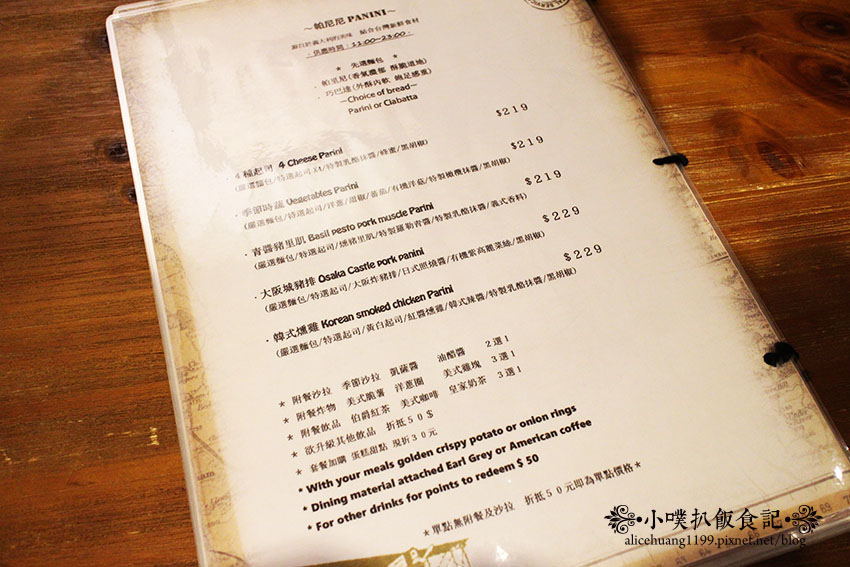 ～帕尼尼 PANINI～
源自於義大利的美味 結合台灣新鮮食材
·供應時間：11:00~23:00·
★ 先選麵包 ★
·帕里尼(香氣濃郁 酥脆道地)
·巧巴達(外酥內軟 飽足感重)
—Choice of bread—
Parini or Ciabatta
$219
·4種起司 4 Cheese Parini
(嚴選麵包/特選起司X4/特製乳酪抹醬/蜂蜜/黑胡椒)
$219
·季節時蔬 Vegetables Parini
(嚴選麵包/特選起司/洋蔥/甜椒/蕃茄/有機洋菇/特製橄欖抹醬/黑胡椒)
$219
·青醬豬里肌 Basil pesto pork muscle Parini
(嚴選麵包/特選起司/燻豬里肌/特製羅勒青醬/特製乳酪抹醬/義式香料)
$229
·大阪城豬排 Osaka Castle pork panini
(嚴選麵包/特選起司/大阪炸豬排/日式照燒醬/有機紫高麗菜絲/黑胡椒)
$229
·韓式燻雞 Korean smoked chicken Parini
(嚴選麵包/特選起司/黃白起司/紅醬燻雞/韓式辣醬/特製乳酪抹醬/黑胡椒)
★ 附餐沙拉 季節沙拉 凱薩醬 油醋醬 2選1
★ 附餐炸物 美式脆薯 洋蔥圈 美式雞塊 3選1
★ 附餐飲品 伯爵紅茶 美式咖啡 皇家奶茶 3選1
★ 欲升級其他飲品 折抵50$
★ 套餐加購 蛋糕甜點 現折30元
* With your meals golden crispy potato or onion rings
* Dining material attached Earl Grey or American coffee
* For other drinks for points to redeem $ 50
★單點無附餐及沙拉 折抵50元即為單點價格★
小噗扒飯食記
alicehuang1199.pixnet.net/blog